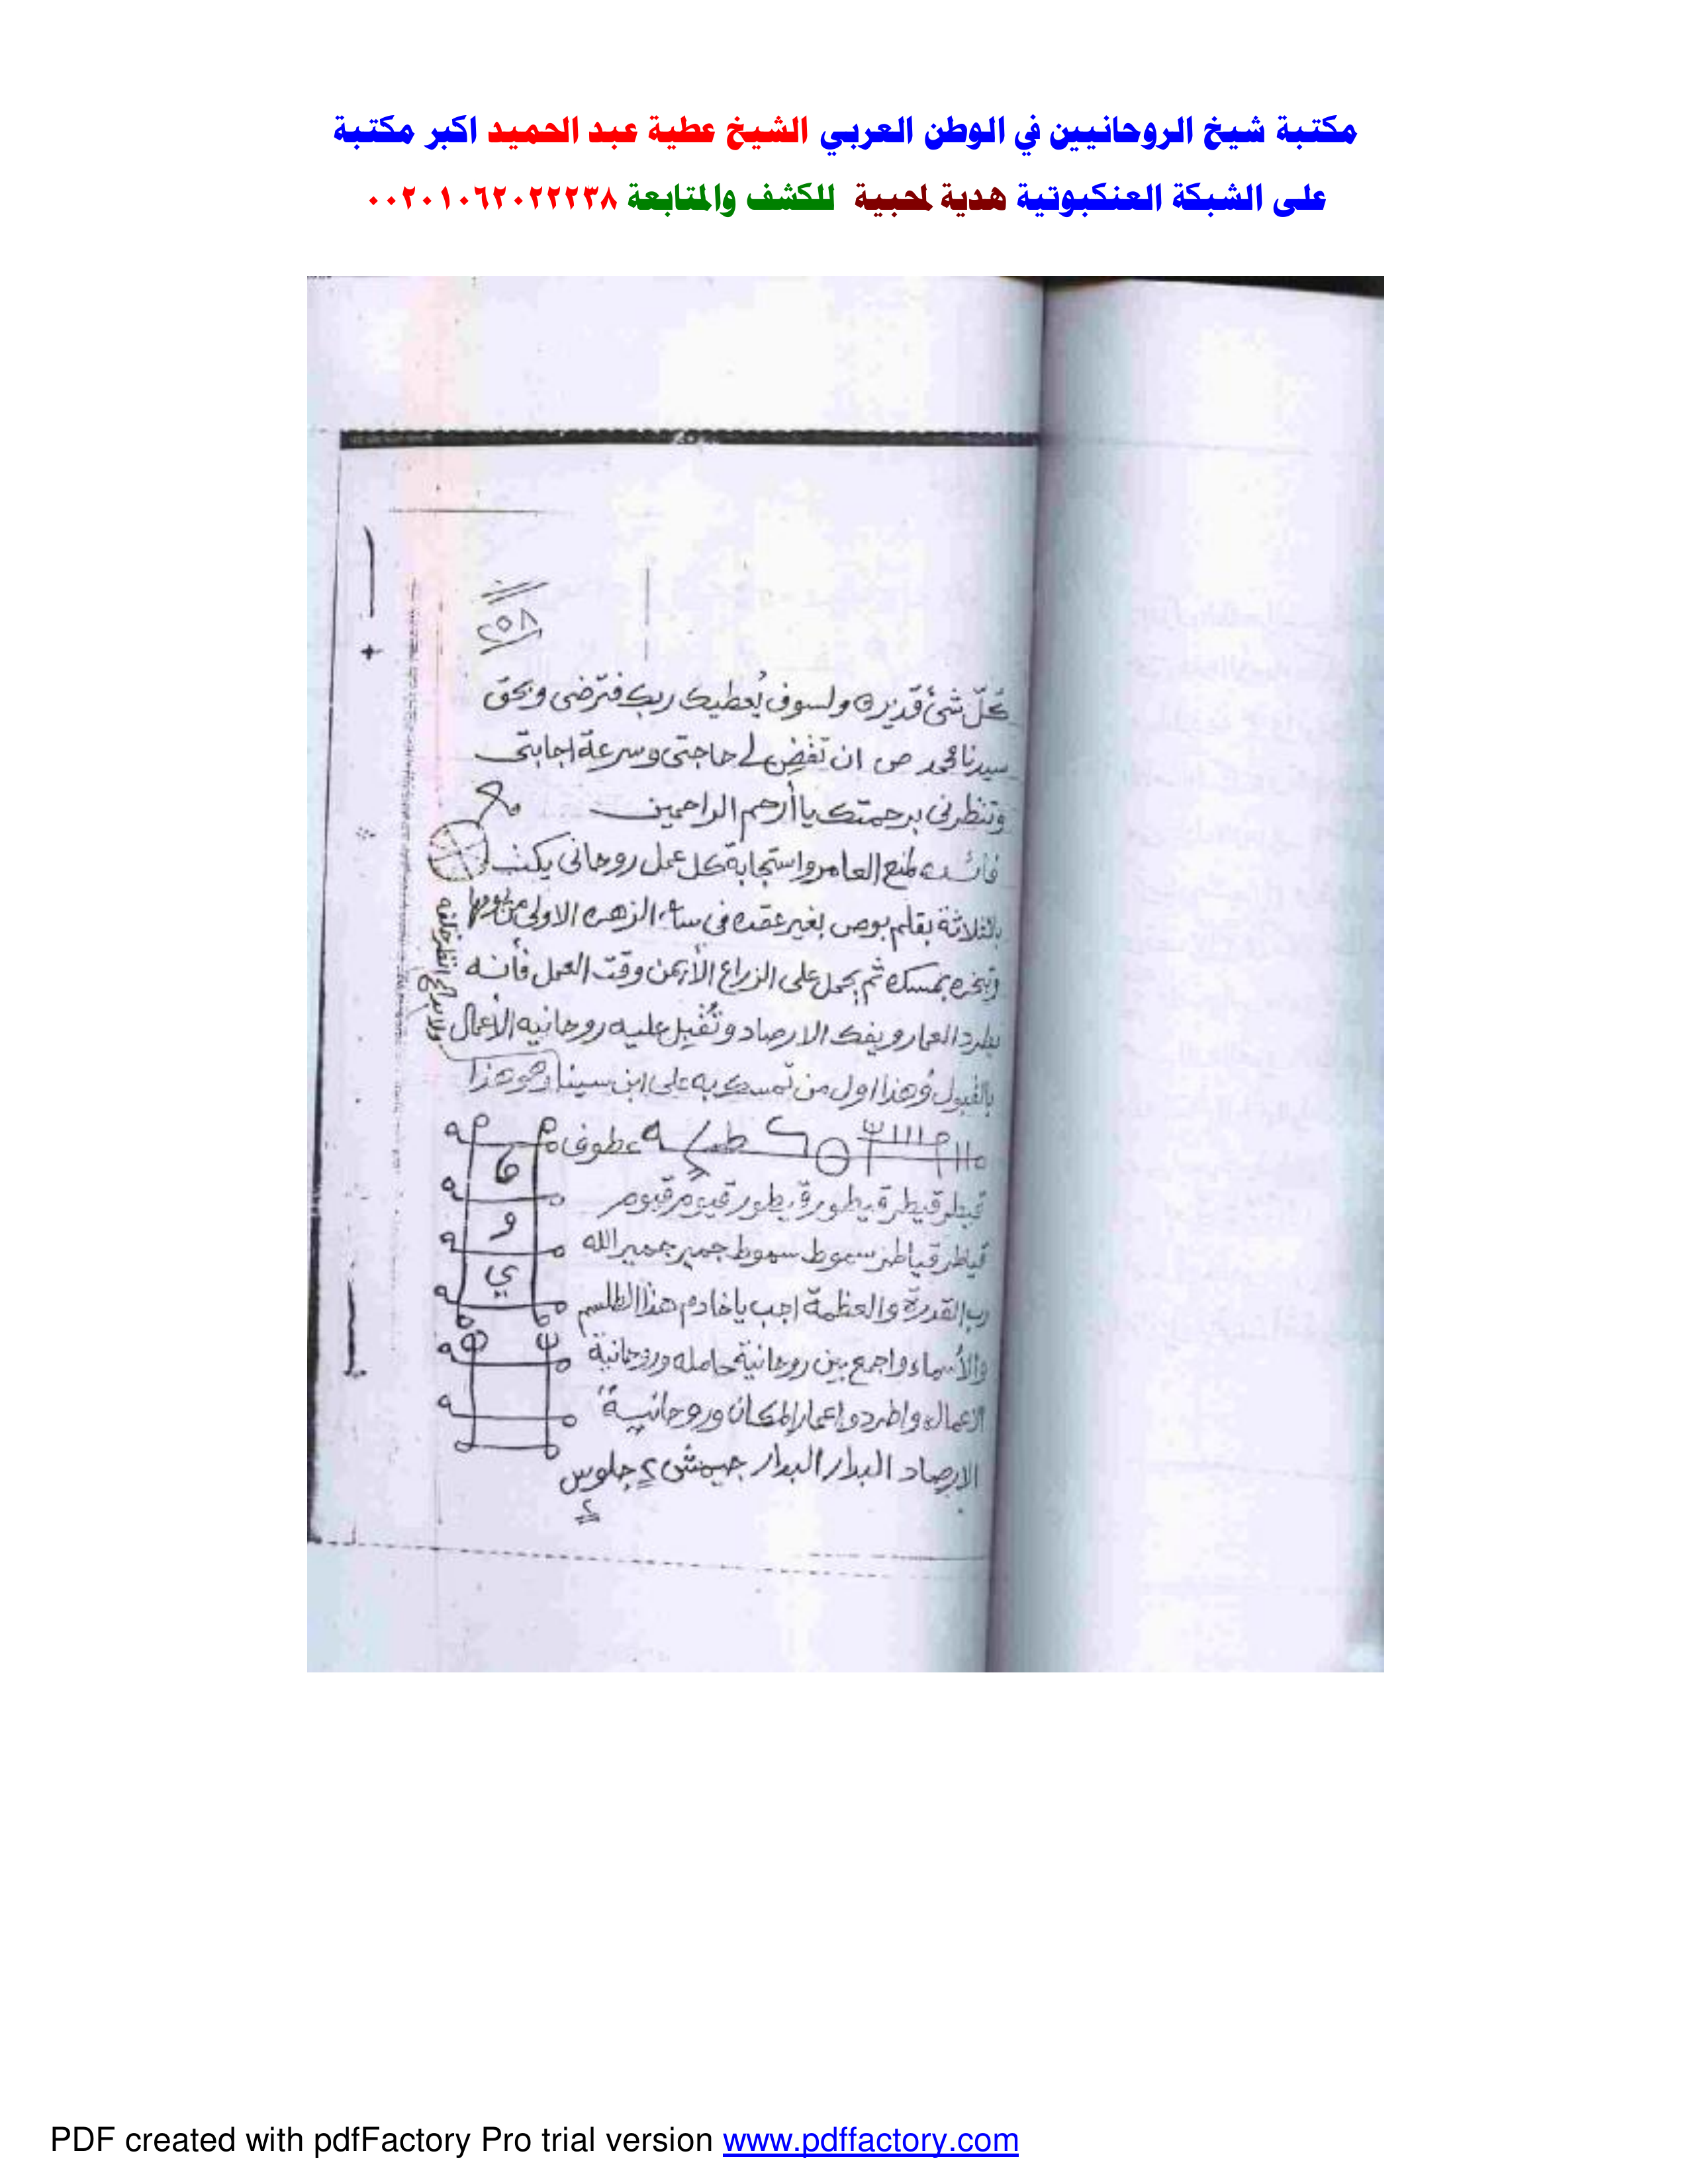 مكتبة شيخ الروحانيين في الوطن العربي الشيخ عطية عبد الحميد اكبر مكتبة
على الشبكة العنكبوتية هدية لمحبية للكشف والمتابعة ٠٠٢٠١٠٦٢٠٢٢٢٣٨
٢٥٨
كلّ شئ قدير ولسوف يُعطيك ربك فترضى وبحق
سيدنا محمد ص ان تقضى لى حاجتى وسرعة اجابتى
وتنظرنى برحمتك يا أرحم الراحمين
فائدة لمنع العامر واستجابة كل عمل روحانى يكتب
بالثلاثة بقلم بوص بغير عقده فى ساعة الزهره الاولى من يومها
وتبخره بمسك ثم يحمل على الزراع الأيمن وقت العمل فأنه
يطرد العمار ويفك الارصاد وتُقبل عليه روحانيه الأعمال
بالقبول وهذا اول من تمسك به على ابن سينا وهو هذا
ولابد انظر خلفه
عطوف
قيطر قيطر قيطور قيطور قيوم قيوم
قياطر قياطر سموط سموط جمير جمير الله
رب القدرة والعظمة اجب يا خادم هذا الطلسم
والأسماء واجمع بين روحانية حامله وروحانية
الاعمال واطردوا عمار المكان وروحانية
الارصاد البدار البدار جيمش ٢ جلوس
٢
و
ي
PDF created with pdfFactory Pro trial version www.pdffactory.com